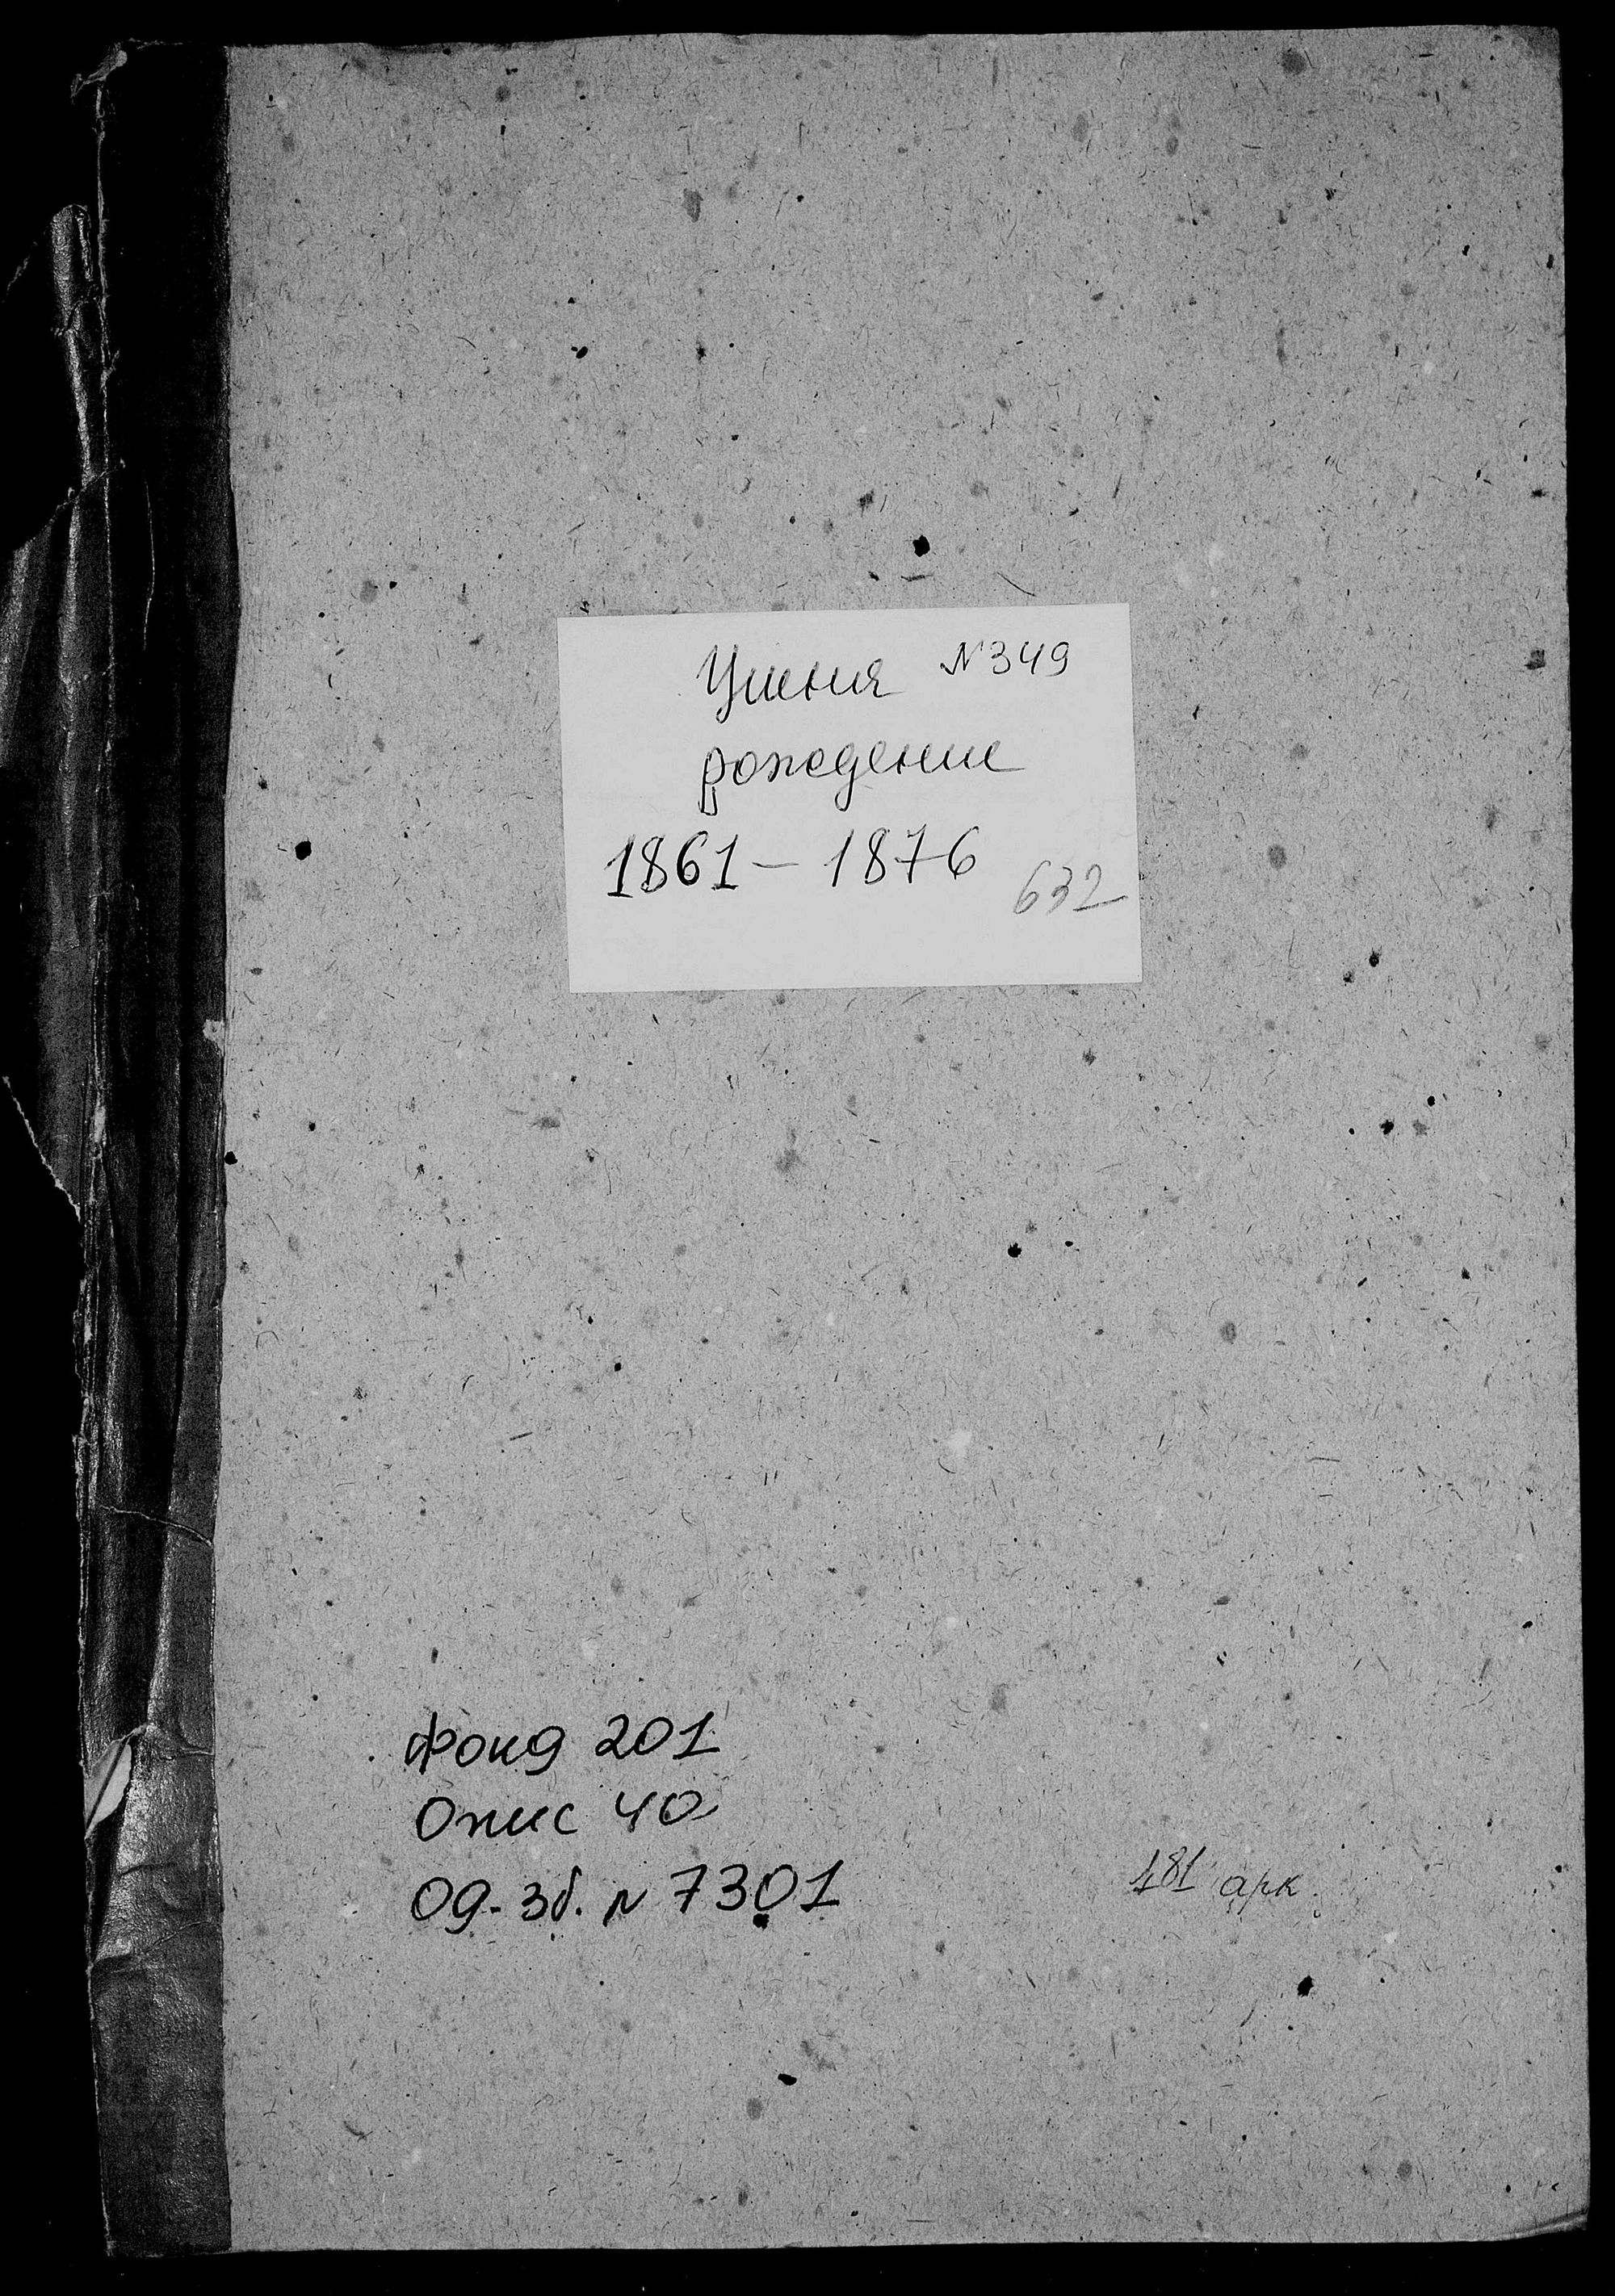 Ушня №349
рождение
1861 – 1876
632
Фонд 201
Опис 4а
Од. зб. № 7301
181 арк.